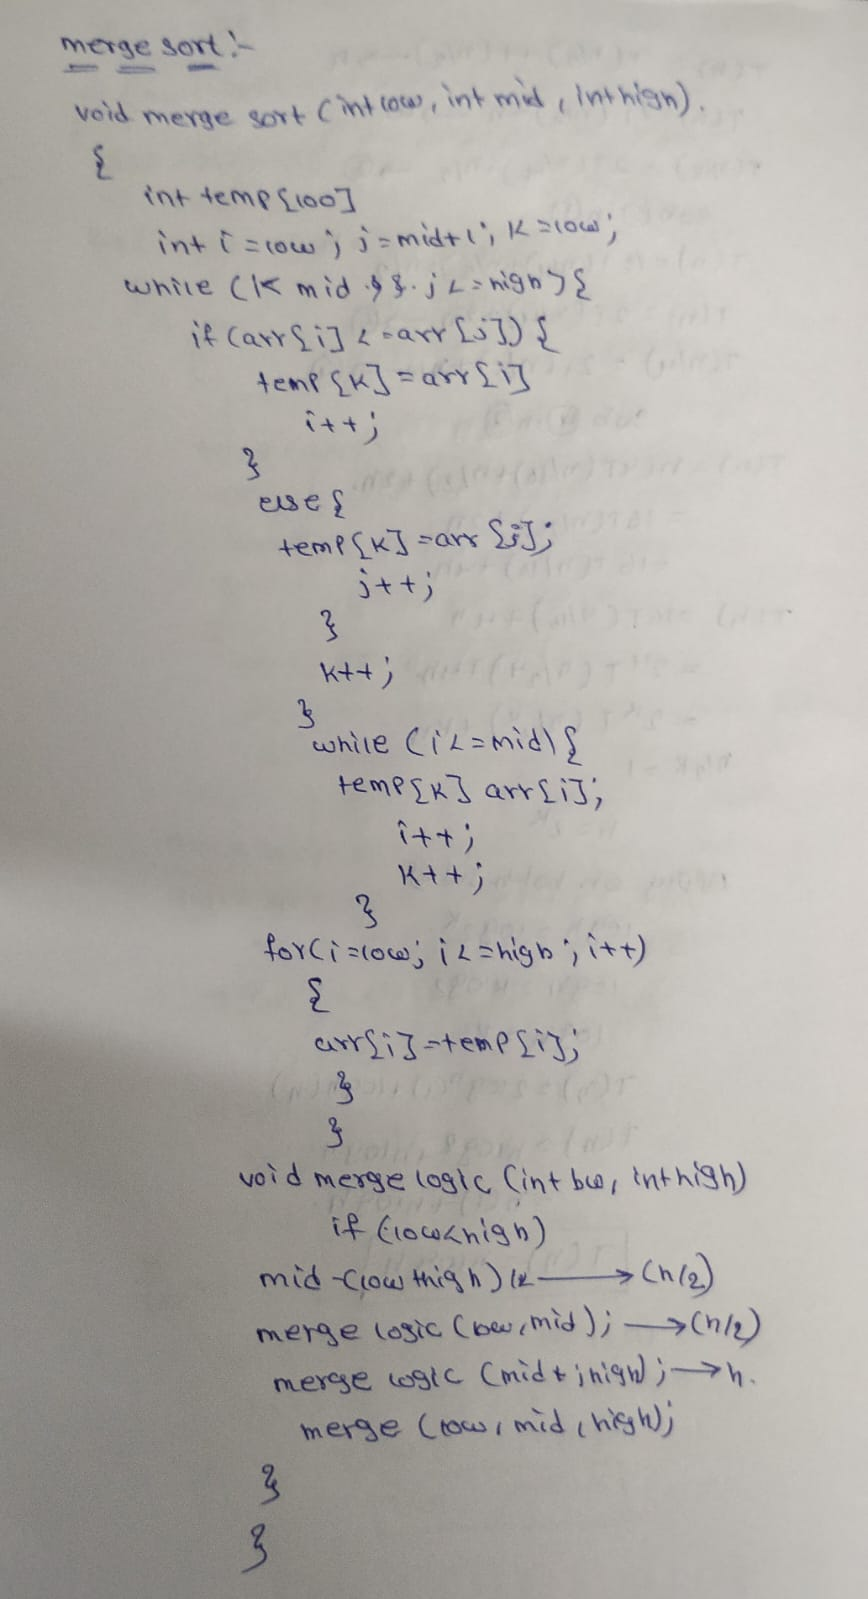 merge sort :-
void merge sort (int low, int mid, int high).
{
int temp[100]
int i = low; j = mid+1; k = low;
while (k mid && j <= high){
if (arr[i] <= arr[j]) {
temp[k] = arr[i]
i++;
}
else {
temp[k] = arr[j];
j++;
}
k++;
}
while (i <= mid) {
temp[k] arr[i];
i++;
k++;
}
for(i=low; i<=high; i++)
{
arr[i] = temp[i];
}
}
void merge logic (int low, int high)
if (low<high)
mid = (low + high)/2 → (n/2)
merge logic (low, mid); → (n/2)
merge logic (mid + ; high); → n.
merge (low, mid, high);
}
}